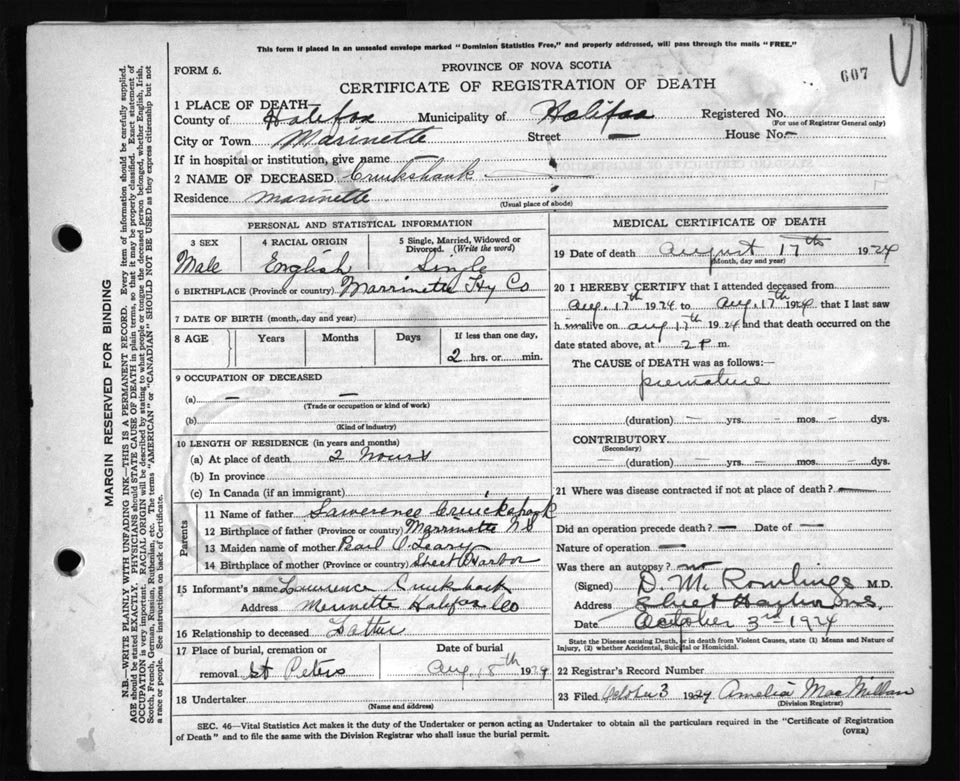 This form if placed in an unsealed envelope marked "Dominion Statistics Free," and properly addressed, will pass through the mails "FREE."
FORM 6.
PROVINCE OF NOVA SCOTIA
607
CERTIFICATE OF REGISTRATION OF DEATH
1 PLACE OF DEATH
County of Halifax Municipality of Halifax Registered No.
(For use of Registrar General only)
City or Town Marinette Street — House No. –
If in hospital or institution, give name
2 NAME OF DECEASED Cruikshank
Residence Marinette
(Usual place of abode)
PERSONAL AND STATISTICAL INFORMATION
3 SEX 4 RACIAL ORIGIN 5 Single, Married, Widowed or Divorced. (Write the word)
Male English Single
6 BIRTHPLACE (Province or country) Marrinette Hx Co
7 DATE OF BIRTH (month, day and year)
8 AGE Years Months Days If less than one day,
2 hrs. or min.
9 OCCUPATION OF DECEASED
(a) — —
(Trade or occupation or kind of work)
(b)
(Kind of industry)
10 LENGTH OF RESIDENCE (in years and months)
(a) At place of death 2 hours
(b) In province
(c) In Canada (if an immigrant)
Parents
11 Name of father Lawerence Cruickshank
12 Birthplace of father (Province or country) Marrinette N S
13 Maiden name of mother Pearl O'Leary
14 Birthplace of mother (Province or country) Sheet Harbor
15 Informant's name Lawrence Cruikshank
Address Merinette Halifax Co
16 Relationship to deceased Father
17 Place of burial, cremation or removal St Peters
Date of burial
Aug 18th 1924
18 Undertaker
(Name and address)
MEDICAL CERTIFICATE OF DEATH
19 Date of death August 17th 1924
(Month, day and year)
20 I HEREBY CERTIFY that I attended deceased from
Aug. 17th 1924 to Aug. 17th 1924 that I last saw
him alive on Aug 17th 1924 and that death occurred on the
date stated above, at 2 P m.
The CAUSE OF DEATH was as follows:—
premature
(duration) — yrs. — mos. — dys.
CONTRIBUTORY
(Secondary)
(duration) — yrs. — mos. — dys.
21 Where was disease contracted if not at place of death? —
Did an operation precede death? — Date of —
Nature of operation —
Was there an autopsy? no
(Signed) D. M. Rowlings M.D.
Address Sheet Harbor N.S.
Date October 3rd 1924
State the Disease causing Death, or in death from Violent Causes, state (1) Means and Nature of
Injury, (2) whether Accidental, Suicidal or Homicidal.
22 Registrar's Record Number
23 Filed October 3 1924 Amelia MacMillan
(Division Registrar)
SEC. 46—Vital Statistics Act makes it the duty of the Undertaker or person acting as Undertaker to obtain all the particulars required in the "Certificate of Registration
of Death" and to file the same with the Division Registrar who shall issue the burial permit.
(OVER)
MARGIN RESERVED FOR BINDING
N.B.—WRITE PLAINLY, WITH UNFADING INK—THIS IS A PERMANENT RECORD. Every item of information should be carefully supplied.
AGE should be stated EXACTLY. PHYSICIANS should STATE CAUSE OF DEATH in plain terms, so that it may be properly classified. Exact statement of
OCCUPATION is very important. RACIAL ORIGIN will be described by stating to what people or tongue the deceased person belonged, whether English, Irish,
Scotch, French, German, Russian, Ruthenian, etc. The terms "AMERICAN" or "CANADIAN" SHOULD NOT BE USED as they express citizenship but not
a race or people. See instructions on back of Certificate.